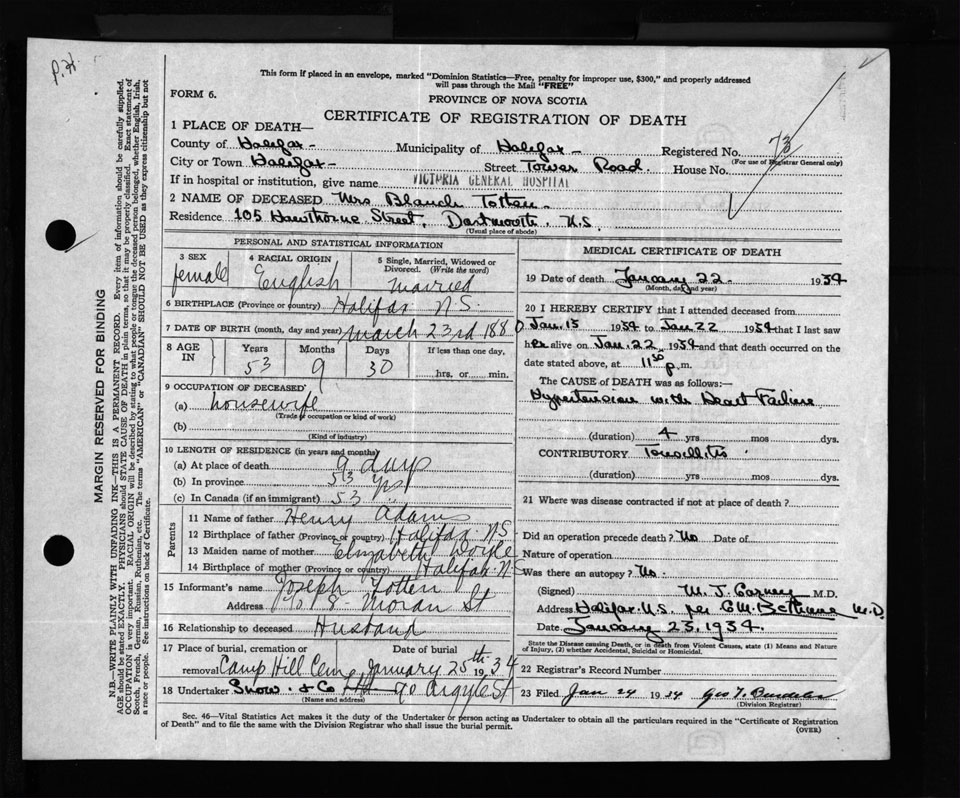 P.H.
This form if placed in an envelope, marked "Dominion Statistics—Free, penalty for improper use, $300," and properly addressed
will pass through the Mail "FREE"
FORM 6.
PROVINCE OF NOVA SCOTIA
CERTIFICATE OF REGISTRATION OF DEATH
1 PLACE OF DEATH—
County of Halifax - Municipality of Halifax - Registered No. 73
(For use of Registrar General only)
City or Town Halifax - Street Tower Road. House No.
If in hospital or institution, give name VICTORIA GENERAL HOSPITAL
2 NAME OF DECEASED Mrs Blanch Totten -
Residence 105 Hawthorne Street, Dartmouth. N.S.
(Usual place of abode)
PERSONAL AND STATISTICAL INFORMATION
3 SEX female
4 RACIAL ORIGIN English
5 Single, Married, Widowed or Divorced. (Write the word) married
6 BIRTHPLACE (Province or country) Halifax N.S.
7 DATE OF BIRTH (month, day and year) march 23rd 1880
8 AGE IN Years 53 Months 9 Days 30 If less than one day, hrs. or min.
9 OCCUPATION OF DECEASED
(a) housewife
(Trade or occupation or kind of work)
(b)
(Kind of industry)
10 LENGTH OF RESIDENCE (in years and months)
(a) At place of death 9 days
(b) In province 53 yrs
(c) In Canada (if an immigrant) 53 "
Parents
11 Name of father Henry Adams
12 Birthplace of father (Province or country) Halifax N.S
13 Maiden name of mother Elizabeth Doyle
14 Birthplace of mother (Province or country) Halifax N.S
15 Informant's name Joseph Totten
Address Moran St
16 Relationship to deceased Husband
17 Place of burial, cremation or removal Camp Hill Cem Date of burial January 25th 1934
18 Undertaker Snow & Co 90 Argyle St
(Name and address)
MEDICAL CERTIFICATE OF DEATH
19 Date of death January 22 - 1934
(Month, day and year)
20 I HEREBY CERTIFY that I attended deceased from
Jan. 15 1934 to Jan 22 1934 that I last saw
her alive on Jan. 22 1934 and that death occurred on the
date stated above, at 11 50 p.m.
The CAUSE OF DEATH was as follows:—
Hypertension with Heart Failure
(duration) 4 yrs mos dys.
CONTRIBUTORY Tonsillitis
(duration) yrs mos dys.
21 Where was disease contracted if not at place of death?
Did an operation precede death? No Date of
Nature of operation
Was there an autopsy? No.
(Signed) M. J. Carney M.D.
Address Halifax N.S. per C.M. Bethune M.D.
Date January 23, 1934.
State the Disease causing Death, or in death from Violent Causes, state (1) Means and Nature
of Injury, (2) whether Accidental, Suicidal or Homicidal.
22 Registrar's Record Number
23 Filed Jan 24 1934
(Division Registrar)
Sec. 46—Vital Statistics Act makes it the duty of the Undertaker or person acting as Undertaker to obtain all the particulars required in the "Certificate of Registration
of Death" and to file the same with the Division Registrar who shall issue the burial permit.
(OVER)
MARGIN RESERVED FOR BINDING
N.B.—WRITE PLAINLY WITH UNFADING INK—THIS IS A PERMANENT RECORD. Every item of information should be carefully supplied.
AGE should be stated EXACTLY. PHYSICIANS should STATE CAUSE OF DEATH in plain terms, so that it may be properly classified. Exact statement of
OCCUPATION is very important. RACIAL ORIGIN will be described by stating to what people or tongue the deceased person belonged, whether English, Irish,
Scotch, French, German, Russian, Ruthenian, etc. The terms "AMERICAN" or "CANADIAN" SHOULD NOT BE USED as they express citizenship but not
a race or people. See instructions on back of Certificate.